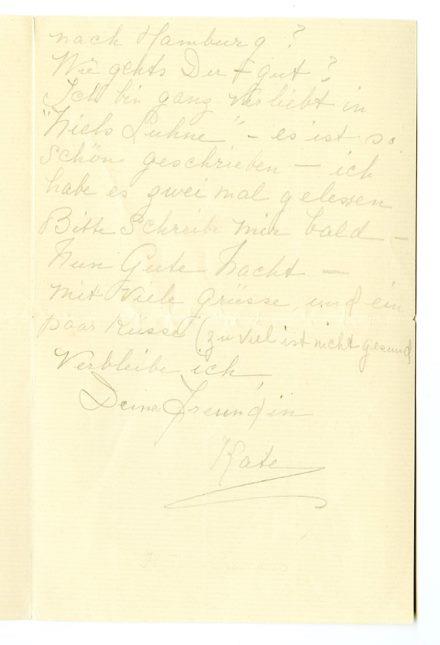 nach Hamburg?
Wie gehts Der gut?
Ich bin ganz verliebt in
"Niels Luhne" – es ist so
schön geschrieben – ich
habe es zwei mal gelessen
Bitte Schreibe mir bald –
Nun Gute Nacht –
mit viele Grüsse und ein
paar Küsse (zu viel ist nicht gesund
Verbleibe ich
Deine Freundin
Kate